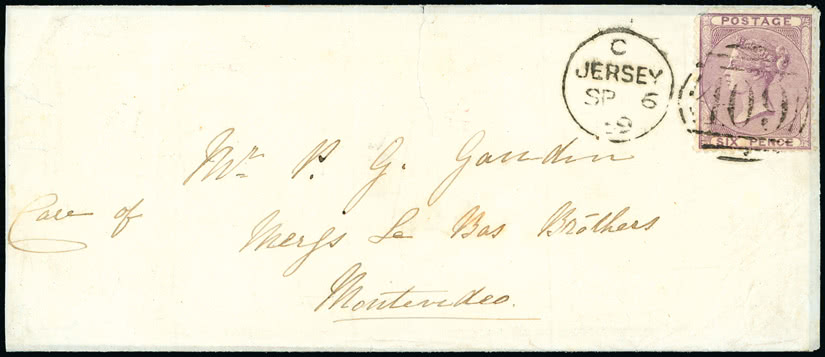 POSTAGE
SIX PENCE
C
JERSEY
SP 6
59
409
Mr. P. G. Gaudin
Care of
Messrs Le Bas Brothers
Montevideo.